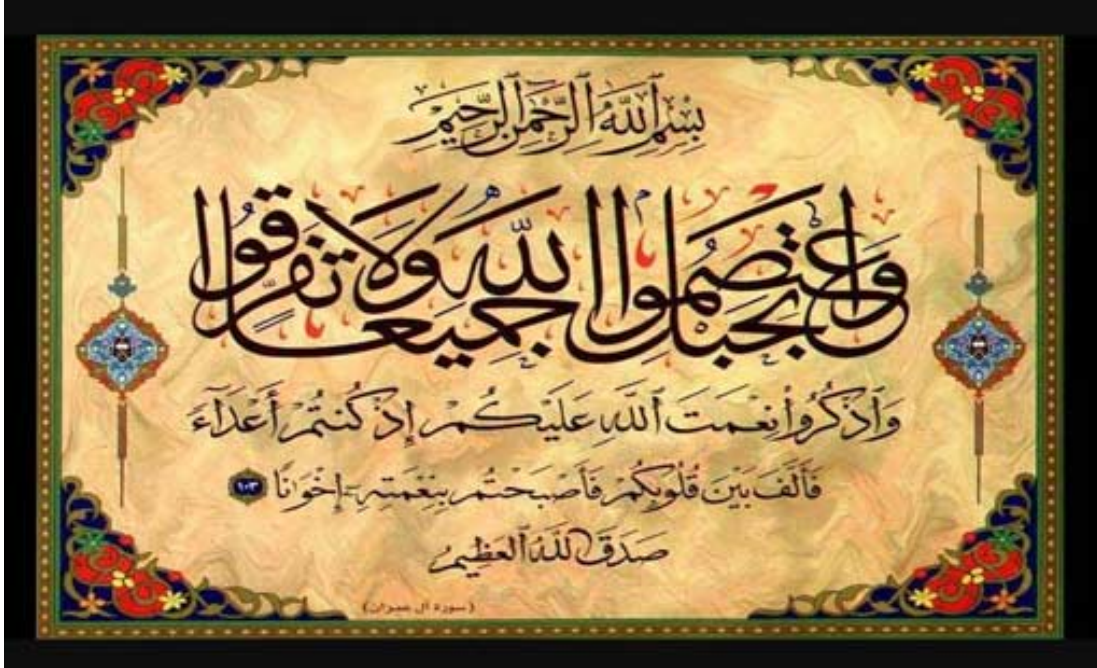 بِسْمِ ٱللَّهِ ٱلرَّحْمَٰنِ ٱلرَّحِيمِ
وَاعْتَصِمُوا بِحَبْلِ اللَّهِ جَمِيعًا وَلَا تَفَرَّقُوا
وَٱذْكُرُوا۟ نِعْمَتَ ٱللَّهِ عَلَيْكُمْ إِذْ كُنتُمْ أَعْدَآءً
فَأَلَّفَ بَيْنَ قُلُوبِكُمْ فَأَصْبَحْتُم بِنِعْمَتِهِۦٓ إِخْوَٰنًا ١٠٣
صَدَقَ ٱللَّهُ ٱلْعَظِيمُ
(سورة آل عمران)